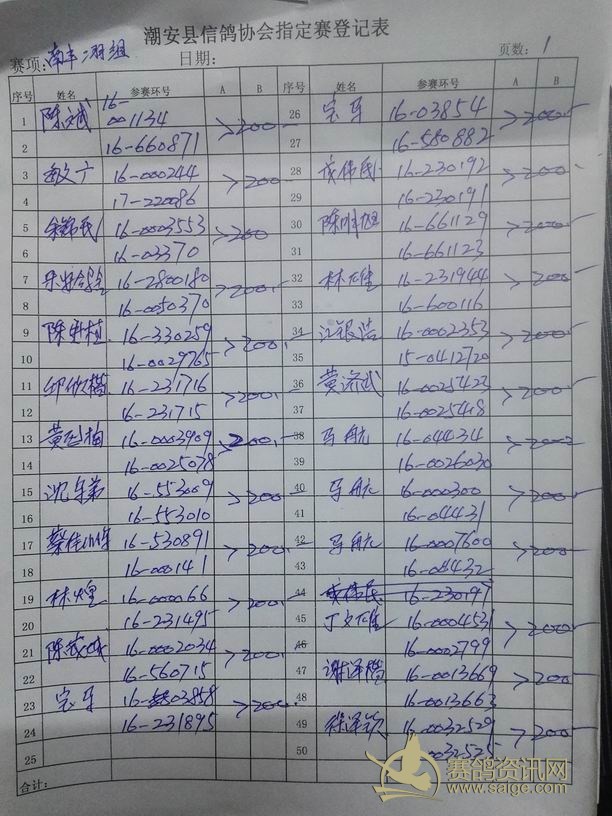 潮安县信鸽协会指定赛登记表
赛项: 南丰二羽组 日期: 页数: 1
序号 姓名 参赛环号 A B 序号 姓名 参赛环号 A B
1 陈文斌 16-001134 >200.- 26 宝军 16-03854 >200.-
2 16-660871 27 16-580882
3 16-000244 >200.- 28 成伟民 16-230192 >200.-
4 17-220086 29 16-230191
5 余锦民 16-0003553 >200 30 16-661129 >200.-
6 16-03370 31 16-661123
7 16-2800180 >200.- 32 林雄 16-231944 >200.-
8 16-0050370 33 16-600116
9 陈植 16-330259 >200.- 34 江银浩 16-0002353 >200.-
10 16-0029765 35 15-0412720
11 邱欣 16-231716 >200.- 36 黄武 16-0025423 >200.-
12 16-231715 37 16-0025418
13 黄梅 16-0003909 >200.- 38 马航 16-04434 >200.-
14 16-0025078 39 16-0026030
15 沈弟 16-553009 >200.- 40 马航 16-000300 >200.-
16 16-553010 41 16-04431
17 蔡佳 16-530891 >200.- 42 马航 16-0007600 >200.-
18 16-001441 43 16-04432
19 林煌 16-000066 >200.- 44 成伟民 16-230197
20 16-231495 45 丁文雄 16-0004531 >200.-
21 陈茂城 16-0002034 >200.- 46 16-0002799
22 16-560715 47 谢泽楷 16-0013669 >200.-
23 宝军 16-03858 >200.- 48 16-0013663
24 16-231895 49 徐泽钦 16-0032529 >200.-
25 50 0032525
合计:
赛鸽资讯网
www.saige.com